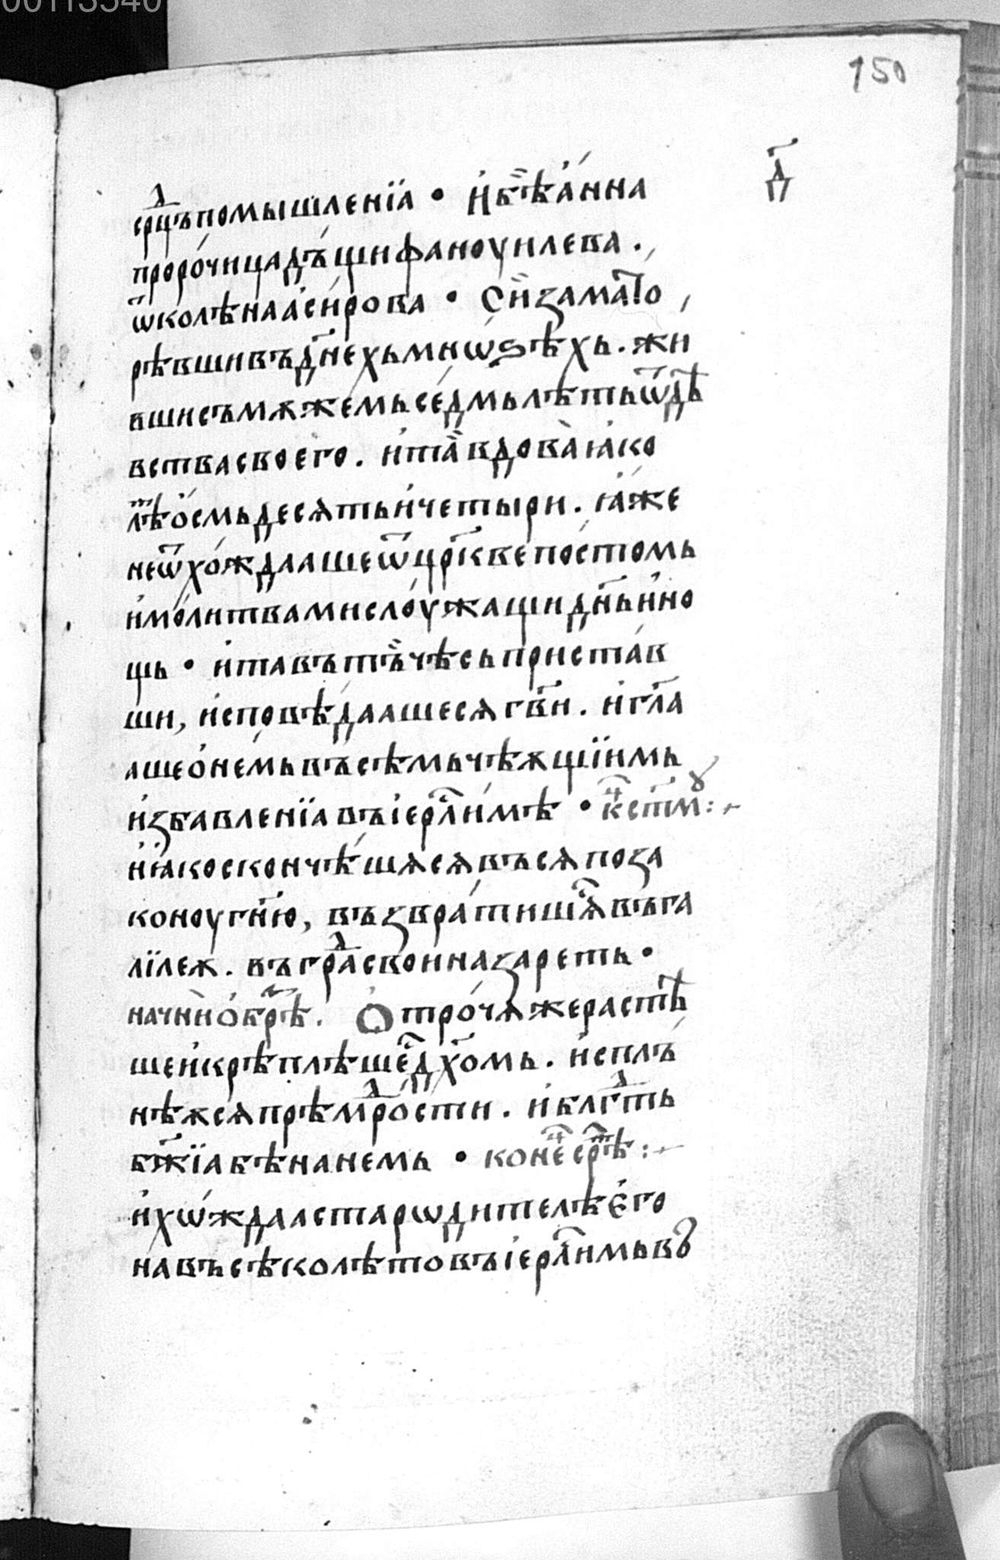 00113540
150
д҃
срⷣцъ помышленїа • и҆ бѣ̀ а҆́нна
проро́чица дъ́щи фаноуилева .
ѿ колѣна а҆си́рова • Сїѝ заматⷪ҇
рѣвши въ дн҃ехь мнѡѕѣхь . жи́
вши съ мѫжемь се́дмь лѣть ѿ дѣⷡ҇
вства своего . и҆ та̀ вдова̀ ꙗ҆ко
лѣⷮ о҆́смьдесѧть и҆ четыри . ꙗ҆́же
не ѿхо́ждааше ѿ цр҃кве постомь
и҆ мо́литвами слоу́жащи дн҃ь и҆ но
щь • и҆ та въ тъ̀ чѣсь приста́в
ши, и҆сповѣ́даашесѧ гв҃и . и҆ гл҃а
аше о҆ не́мь въсѣмь чѣѫщїимь
и҆збавленїа въ і҆ерⷭ҇лимѣ • кⷪ҇ стⷨ҇ꙋ :~
и҆ ꙗ҆ко сконча́шѧсѧ въсѧ по за
коноу гн҃ю , възврати́шѧⷭ҇ въ га
лїлеѫ . въ граⷣ свои назареть •
начи́нѡ҆брⷣѣ . Ѻ҆троча́ же растѣⷲ҇
ше и҆ крѣплѣшеⷭ҇ дх҃омь . и҆сплъ́
нѣѫсѧ прѣмⷣрости . и҆ блгⷣть
бж҃їа бѣ на немь • конеⷰ҇ срⷣѣ :~
и҆ хѡ́ждааста рѡдителѣ е҆го
на въсѣко лѣто въ і҆ерⷭ҇лимь въ